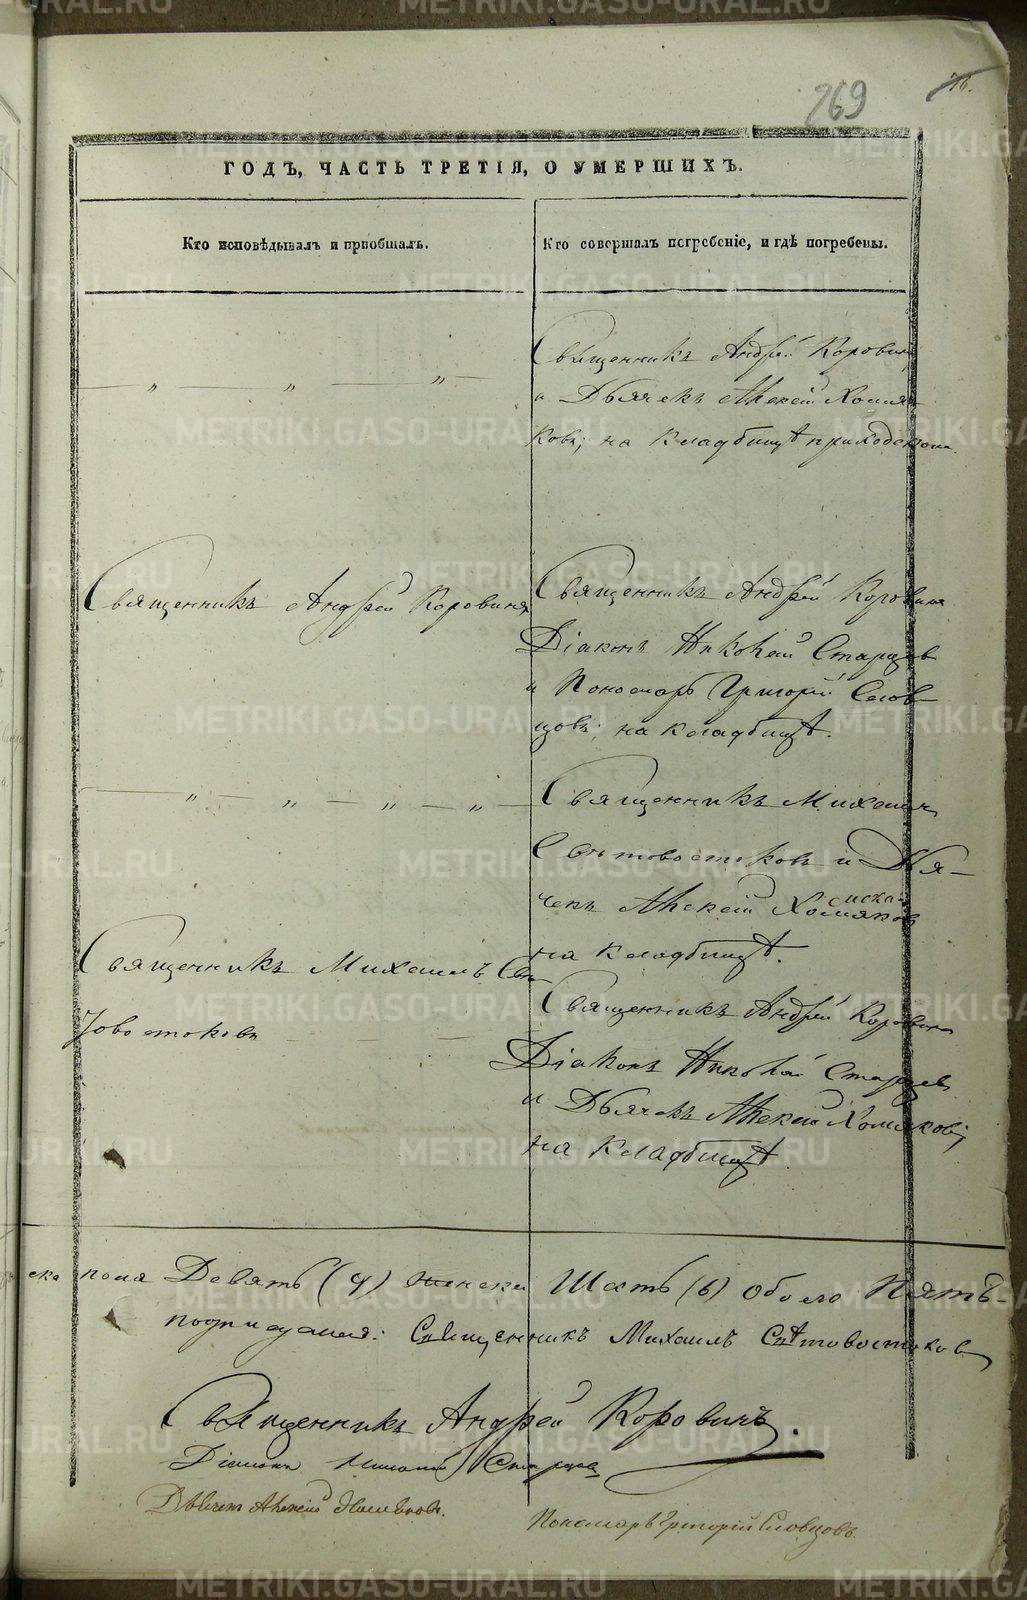 76.
269
ГОДЪ, ЧАСТЬ ТРЕТІЯ, О УМЕРШИХЪ.
Кто исповѣдывалъ и пріобщалъ.
Кто совершалъ погребеніе, и гдѣ погребены.
Священникъ Андрей Коровинъ
и Дьячекъ Алексѣй Хомя
ковъ; на кладбищѣ приходскомъ.
Священникъ Андрей Коровинъ
Священникъ Андрей Коровинъ
Діаконъ Николай Старцев
и Пономарь Григорій Слов-
цовъ; на кладбищѣ.
Священникъ Михаилъ
Свѣтовостоковъ и Дья-
чекъ Алексѣй Хомяков
на кладбищѣ.
Священникъ Михаилъ Свѣ-
товостоковъ
Священникъ Андрей Коровинъ
Діаконъ Николай Старцев
и Дьячекъ Алексѣй Хомяковъ;
на кладбищѣ.
ска пола Девять (9) женска Шесть (6) обоего Пять
Священникъ Михаилъ Свѣтовостоков
Священникъ Андрей Коровинъ.
Діаконъ Николай Старцев
Дьячекъ Алексѣй Хомяковъ.
Пономарь Григорій Словцовъ.
METRIKI.GASO-URAL.RU